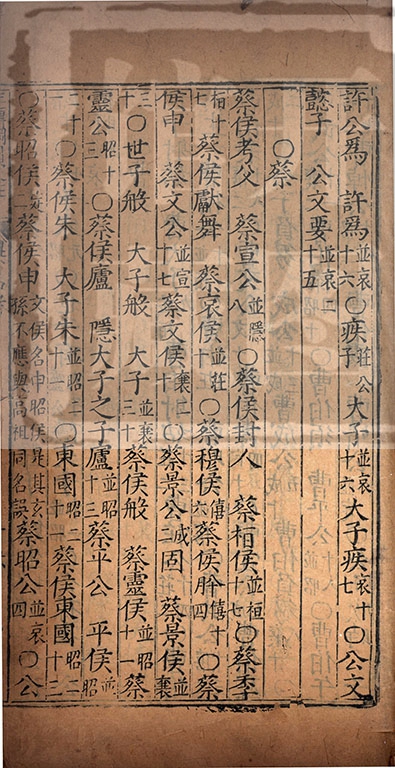 許公爲 許爲並哀十六○疾子莊公 大子並哀十六大子疾哀十七○公文
懿子 公文要並哀二十五
○蔡
蔡侯考父 蔡宣公並隱八○蔡侯封人 蔡桓侯並桓十七○蔡季
桓十七 蔡侯獻舞 蔡哀侯並莊十○蔡穆侯僖六蔡侯肸僖十四○蔡
侯申 蔡文公並宣十七蔡文侯襄二十○蔡景公成二固 蔡景侯並襄
三十○世子般 大子般 大子並襄三十蔡侯般 蔡靈侯並昭十一蔡
靈公昭十三○蔡侯廬 隱大子之子廬並昭十三蔡平公 平侯並昭
二十一○蔡侯朱 大子朱並昭二十一○東國昭二十一蔡侯東國昭二十三
○蔡昭侯二蔡侯申文侯名申昭侯是其玄孫不應與高祖同名誤蔡昭公並哀四○公